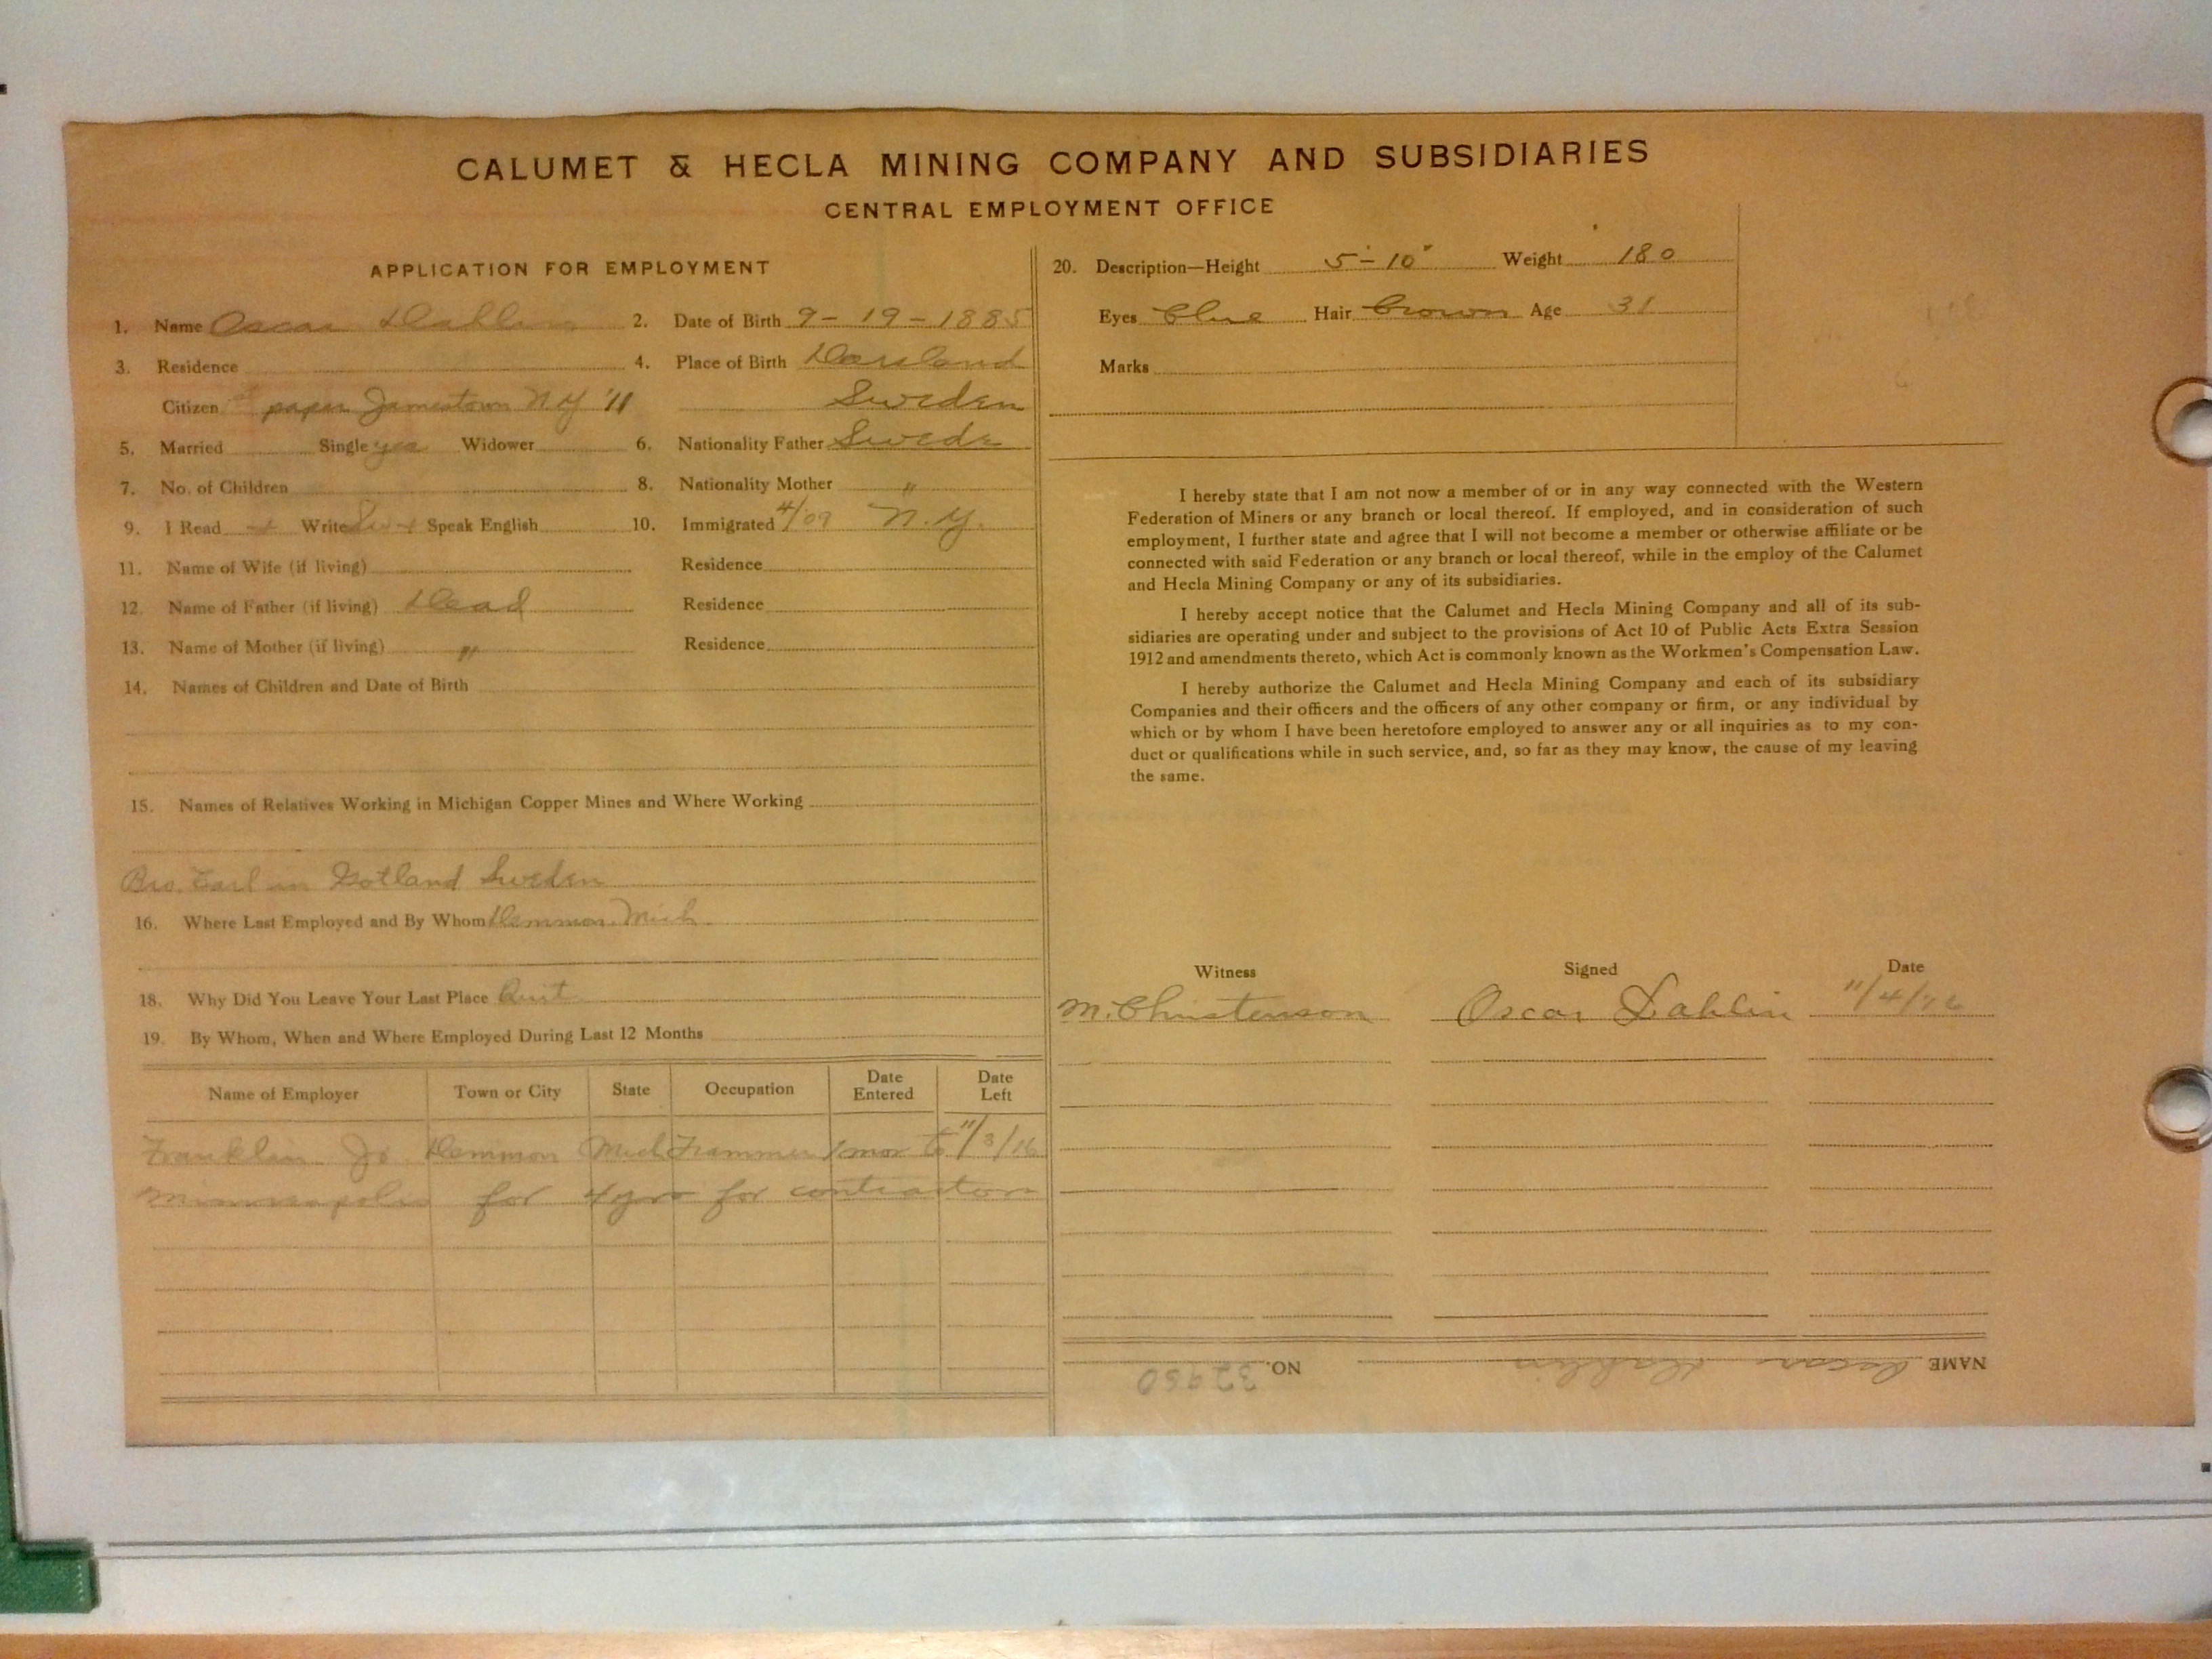 CALUMET & HECLA MINING COMPANY AND SUBSIDIARIES
CENTRAL EMPLOYMENT OFFICE
APPLICATION FOR EMPLOYMENT
1. Name Oscar Dahlin 2. Date of Birth 9-19-1885
3. Residence 4. Place of Birth Dorsland
Citizen paper Jamestown N.Y '11 Sweden
5. Married Single yes Widower 6. Nationality Father Swede
7. No. of Children 8. Nationality Mother "
9. I Read + Write Sw + Speak English 10. Immigrated 4/09 N.Y.
11. Name of Wife (if living) Residence
12. Name of Father (if living) Dead Residence
13. Name of Mother (if living) " Residence
14. Names of Children and Date of Birth
15. Names of Relatives Working in Michigan Copper Mines and Where Working
Bro. Carl in Gotland Sweden
16. Where Last Employed and By Whom Demmon Mich.
18. Why Did You Leave Your Last Place Quit
19. By Whom, When and Where Employed During Last 12 Months
Name of Employer Town or City State Occupation Date Entered Date Left
Franklin Jr. Demmon Mich Trammer 1 mor to 11/3/16
Minneapolis for 4 yrs for contractors
20. Description—Height 5'-10" Weight 180
Eyes blue Hair brown Age 31
Marks
I hereby state that I am not now a member of or in any way connected with the Western
Federation of Miners or any branch or local thereof. If employed, and in consideration of such
employment, I further state and agree that I will not become a member or otherwise affiliate or be
connected with said Federation or any branch or local thereof, while in the employ of the Calumet
and Hecla Mining Company or any of its subsidiaries.
I hereby accept notice that the Calumet and Hecla Mining Company and all of its sub-
sidiaries are operating under and subject to the provisions of Act 10 of Public Acts Extra Session
1912 and amendments thereto, which Act is commonly known as the Workmen's Compensation Law.
I hereby authorize the Calumet and Hecla Mining Company and each of its subsidiary
Companies and their officers and the officers of any other company or firm, or any individual by
which or by whom I have been heretofore employed to answer any or all inquiries as to my con-
duct or qualifications while in such service, and, so far as they may know, the cause of my leaving
the same.
Witness Signed Date
M. Christenson Oscar Dahlin 11/4/16
NAME Oscar Dahlin NO. 32980